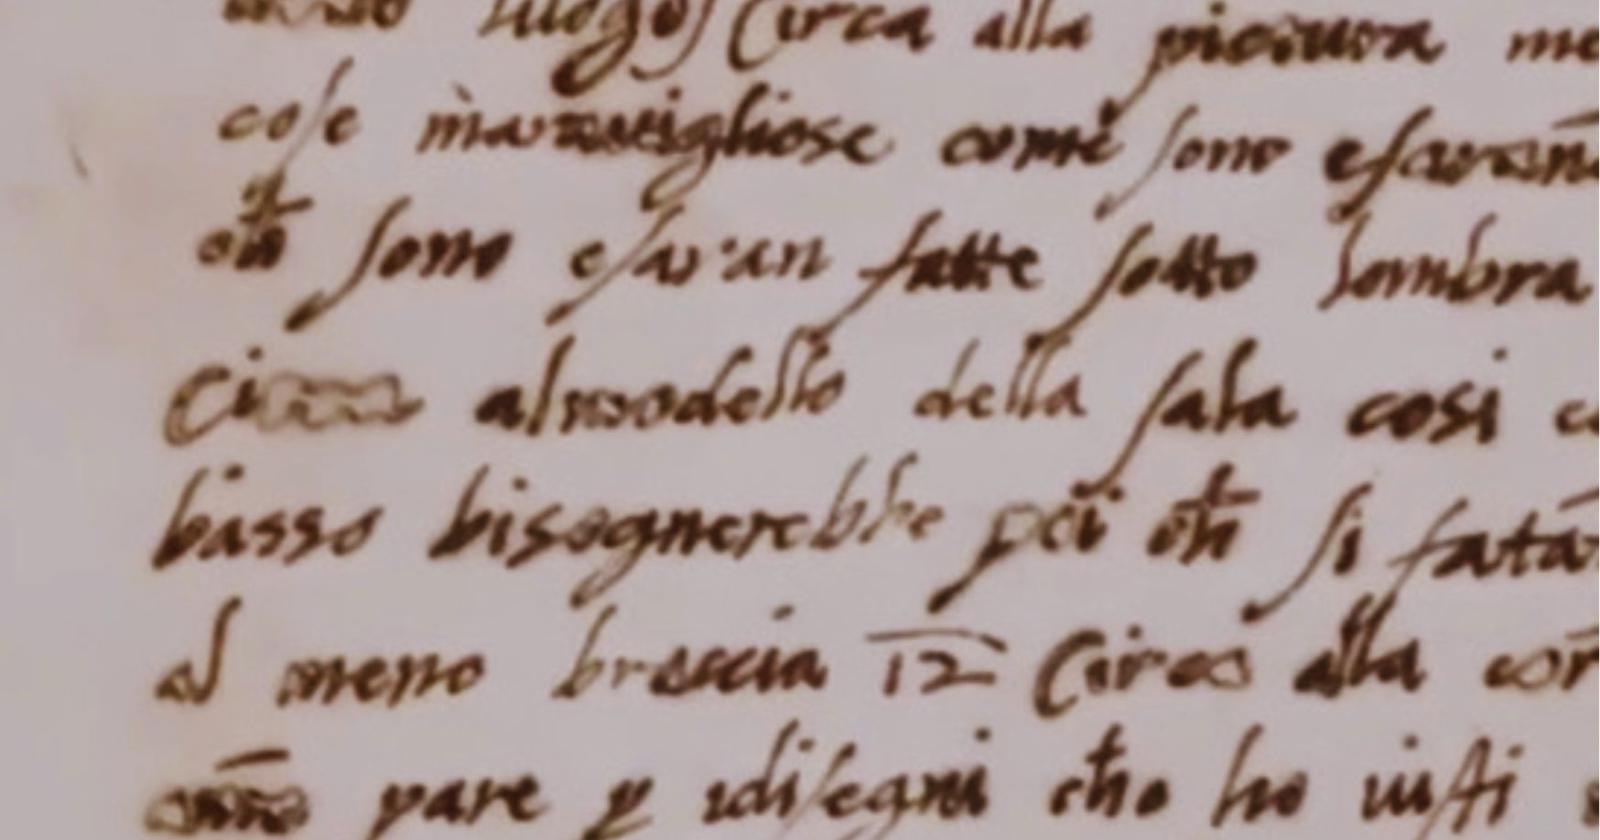 luogo) Circa alla pictura me
cose maravigliose come sono e saran
ch̄ sono e saran fatte sotto lombra
Circa al modello della sala cosi c
basso bisognerebbe poi ch̄ si fata
al meno braccia 12 Circa alla cor
pare p idisegni cho ho uisti s